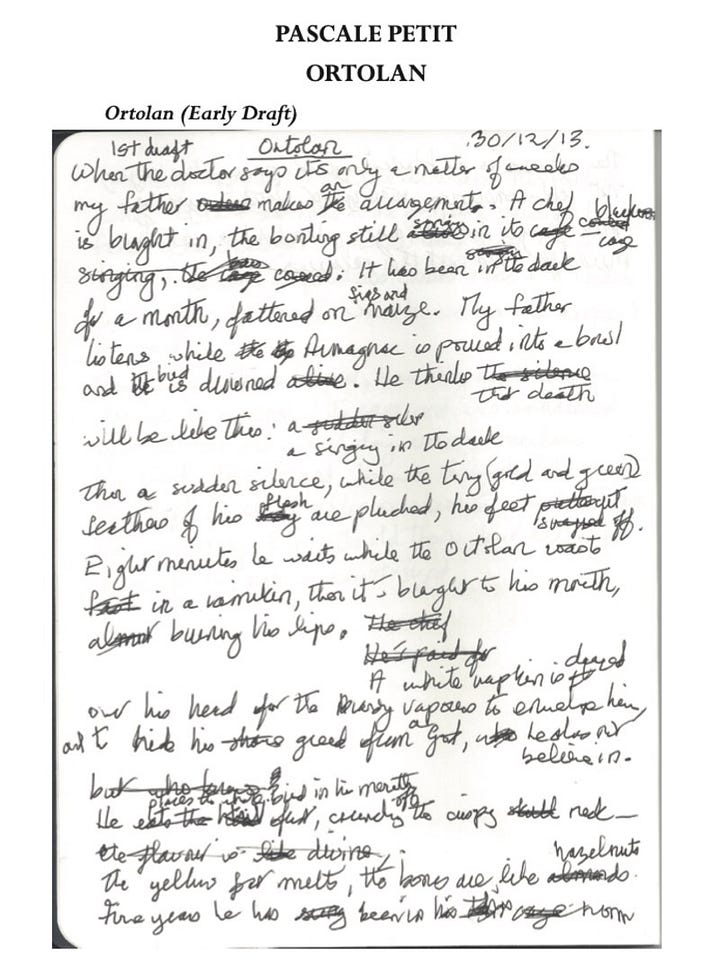 PASCALE PETIT
ORTOLAN
Ortolan (Early Draft)
1st draft Ortolan 30/12/13.
When the doctor says it's only a matter of weeks
an
my father makes the arrangements. A chef
is brought in, the bunting still singing in its cage covered blackout cage
singing, the cage was covered. It has been singing in the dark
figs and
for a month, fattened on maize. My father
listens while the Armagnac is poured into a bowl
and the bird is drowned alive. He thinks the silence
that death
will be like this: a sudden
a singing in the dark
then a sudden silence, while the tiny (gold and green)
feathers of his flesh are plucked, his feet
snapped off.
Eight minutes he waits while the Ortolan roasts
fast in a ramekin, then it's brought to his mouth,
almost burning his lips. The chef
He's paid for
A white napkin is draped
over his head for the brandy vapours to envelope him,
and to hide his greed from a God, who he does not
believe in.
but who knows?
places the whole bird in his mouth
He eats the head first, crunching the crispy skull neck –
the flavour is like divine,
hazelnuts
The yellow fat melts, the bones are like almonds.
Five years he has been in his cage room